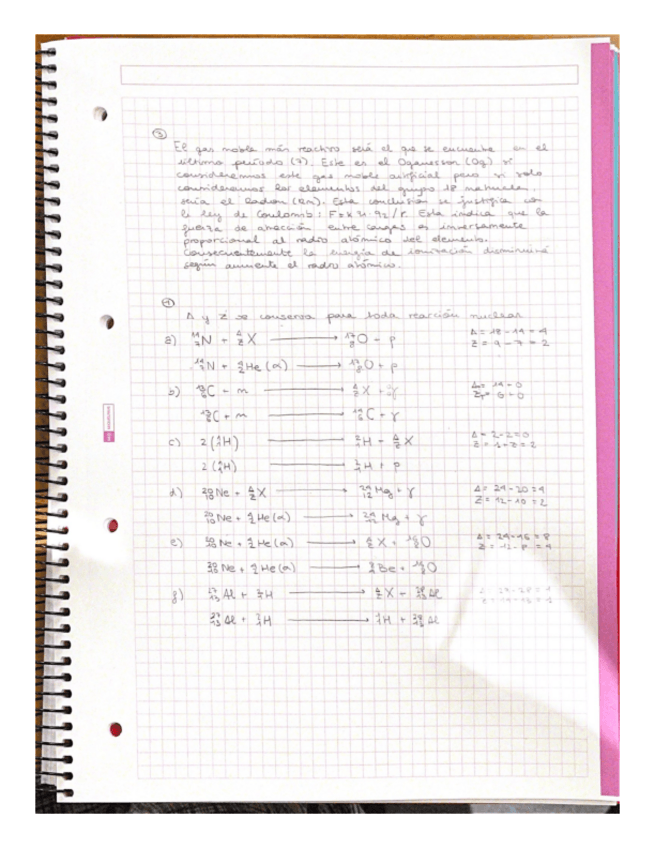 ③
El gas noble más reactivo será el que se encuentre en el
último periodo (7). Este es el Oganesson (Og) si
consideramos este gas noble artificial pero si solo
consideramos los elementos del grupo 18 naturales,
sería el Radon (Rn). Esta conclusión se justifica con
la ley de Coulomb: F=K
fuerza de atracción entre cargas es inversamente
proporcional al radio atómico del elemento.
Consecuentemente la energía de ionización disminuirá
según aumente el radio atómico.
A y Z se conserva para toda reacción nuclear
a) ¹⁴₇N + ᴬ_Z X → ¹⁷₈O + p A = 18 - 14 = 4
Z = 9 - 7 = 2
¹⁴₇N + ⁴₂He (α) → ¹⁷₈O + p
b) ¹³₆C + n → ᴬ_Z X + γ
¹³₆C + n → ¹⁴₆C + γ
c) 2 (¹₁H) → ²₁H + ᴬ_Z X
2 (¹₁H) → ²₁H + p
d) ²⁰₁₀Ne + ᴬ_Z X → ²⁴₁₂Mg + γ A = 24 - 20 = 4
Z = 12 - 10 = 2
²⁰₁₀Ne + ⁴₂He (α) → ²⁴₁₂Mg + γ
e) ²⁰₁₀Ne + ⁴₂He (α) → ᴬ_Z X + ¹⁶₈O A = 24 - 16 = 8
Z = 12 - 8 = 4
²⁰₁₀Ne + ⁴₂He (α) → ⁸₄Be + ¹⁶₈O
²⁷₁₃Al + ²₁H → ᴬ_Z X + ²⁸₁₃Al
²⁷₁₃Al + ²₁H → ¹₁H + ²⁸₁₃Al